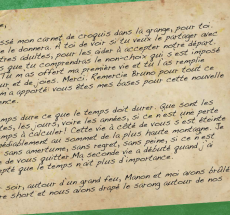 e,
ssé mon carnet de croquis dans la grange, pour toi.
te le donnera. A toi de voir si tu veux le partager avec
tres adultes, pour les aider à accepter notre départ.
s que tu comprendras le non-choix qui s'est imposé
Tu m'as offert ma première vie et tu l'as remplie
ur et de joies. Merci. Remercie Bruno pour tout ce
m'a apporté: vous êtes mes bases pour cette nouvelle
nce.
mps dure ce que le temps doit durer. Que sont les
tes, les jours, voire les années, si ce n'est une perte
mps à calculer! Cette vie à côté de vous s'est éteinte
médiablement au sommet de la plus haute montagne. Je
sans amertume, sans regret, sans peine, si ce n'est
de vous quitter. Ma seconde vie a débuté quand j'
pté que le temps n'ait plus d'importance.
soir, autour d'un grand feu, Manon et moi avons brûlé
re short et nous avons drapé le sarong autour de nos